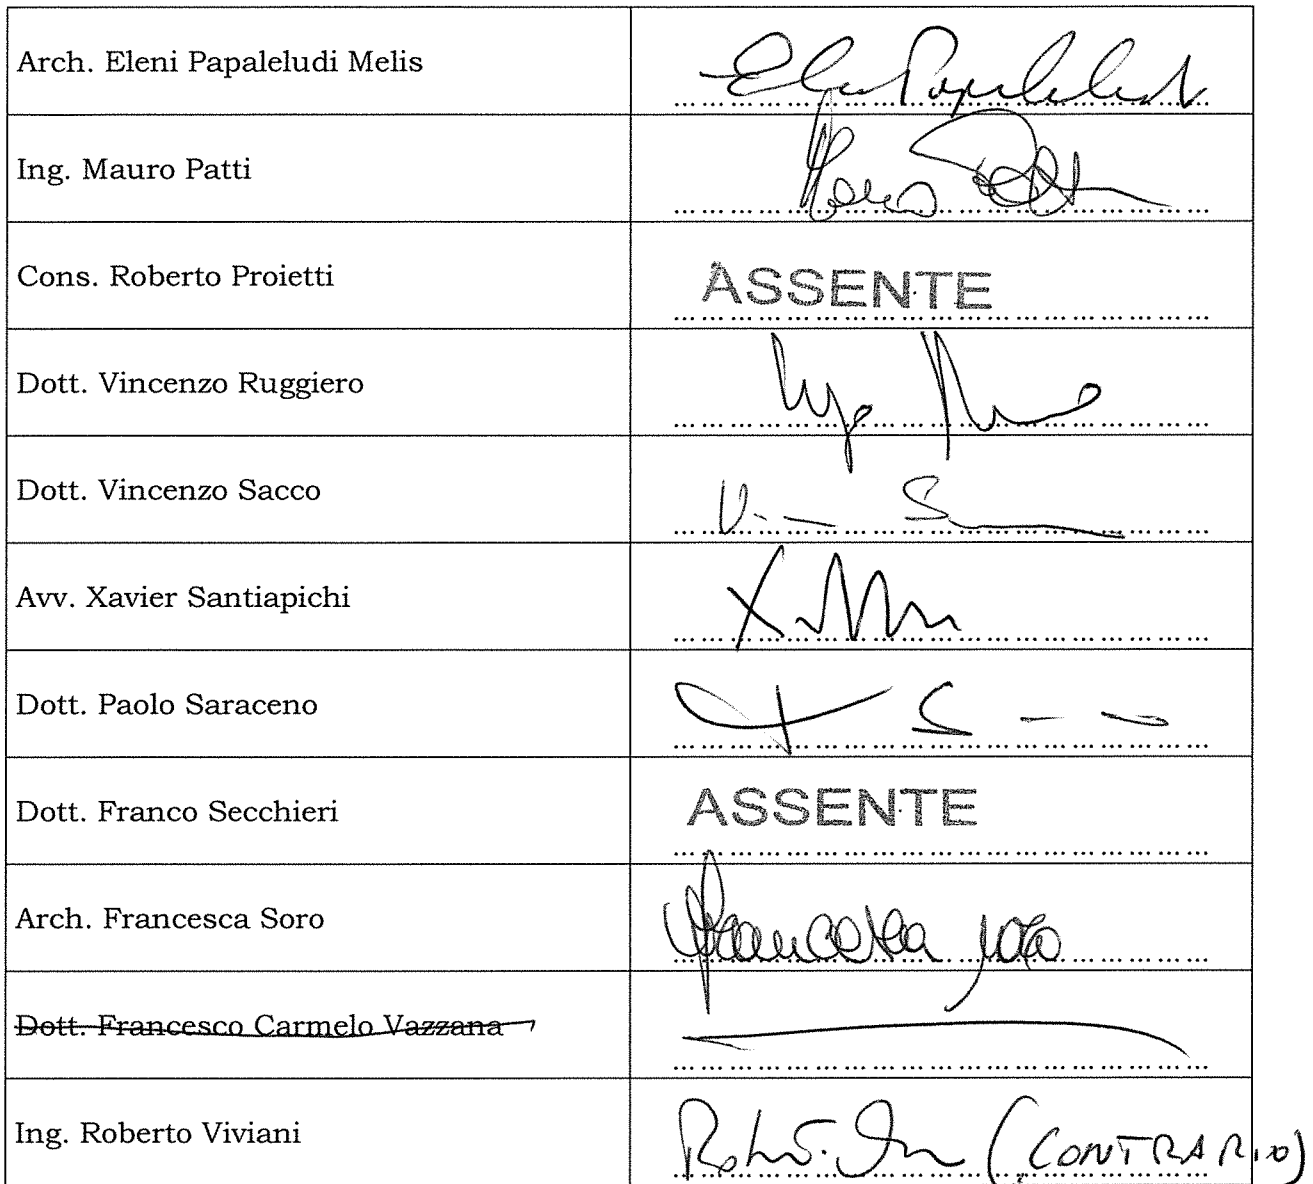 Arch. Eleni Papaleludi Melis
Ing. Mauro Patti
Cons. Roberto Proietti ASSENTE
Dott. Vincenzo Ruggiero
Dott. Vincenzo Sacco
Avv. Xavier Santiapichi
Dott. Paolo Saraceno
Dott. Franco Secchieri ASSENTE
Arch. Francesca Soro Francesca Soro
Dott. Francesco Carmelo Vazzana
Ing. Roberto Viviani (CONTRARIO)